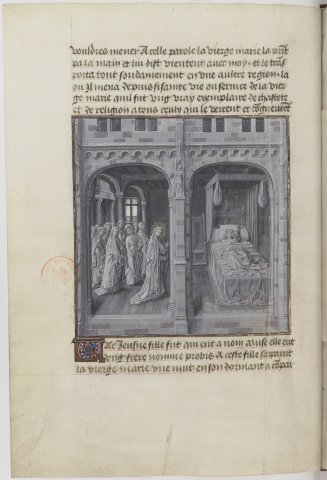 vouldres mener A celle parole la vierge marie la prit
par la main et lui dist vientent avec moy et le trans
porta tout soudainement en une aultre region la
ou il mena depuis si sainte vie ou service de la vier
ge marie quil fut ung vray exemplaire de chastete
et de religion a tous ceulx qui le veirent et congneurent
Une Jeusne fille fut qui eut a nom Muse elle eut
ung frere nomme probus A ceste fille sapparut
la vierge marie une nuit en son dormant acompai